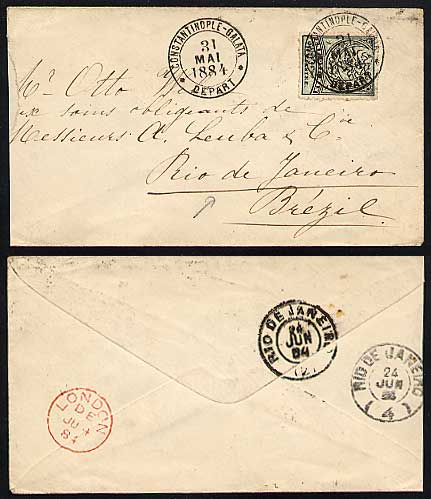 CONSTANTINOPLE-GALATA
31
MAI
1884
* DEPART *
CONSTANTINOPLE-GALATA
31
MAI
DEPART
Mr Otto
aux soins obligeants de
Messieurs A. Leuba & Cie
Rio de Janeiro
Brézil.
RIO DE JANEIRO
24
JUN
84
(2)
RIO DE JANEIRO
24
JUN
(4)
LONDON
DE
JU 4
84